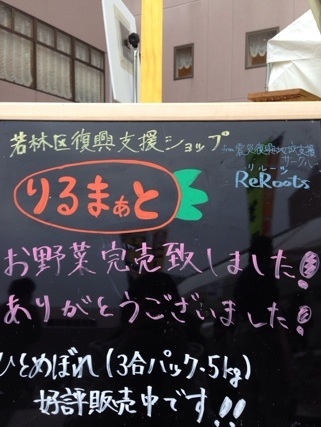 若林区復興支援ショップ
from 震災復興・地域支援
サークル
リルーツ
ReRoots
りるまぁと
お野菜完売致しました!
ありがとうございました!
ひとめぼれ(3合パック・5kg)
好評販売中です!!